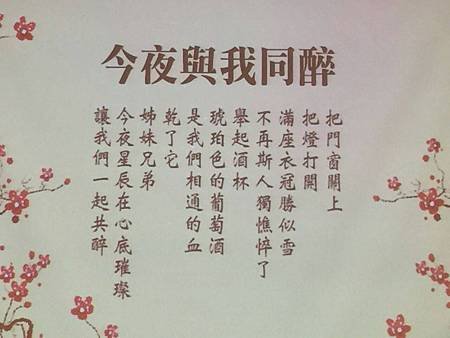 今夜與我同醉
把門窗關上
把燈打開
滿座衣冠勝似雪
不再斯人獨憔悴了
舉起酒杯
琥珀色的葡萄酒
是我們相通的血
乾了它
姊妹兄弟
今夜星辰在心底璀璨
讓我們一起共醉